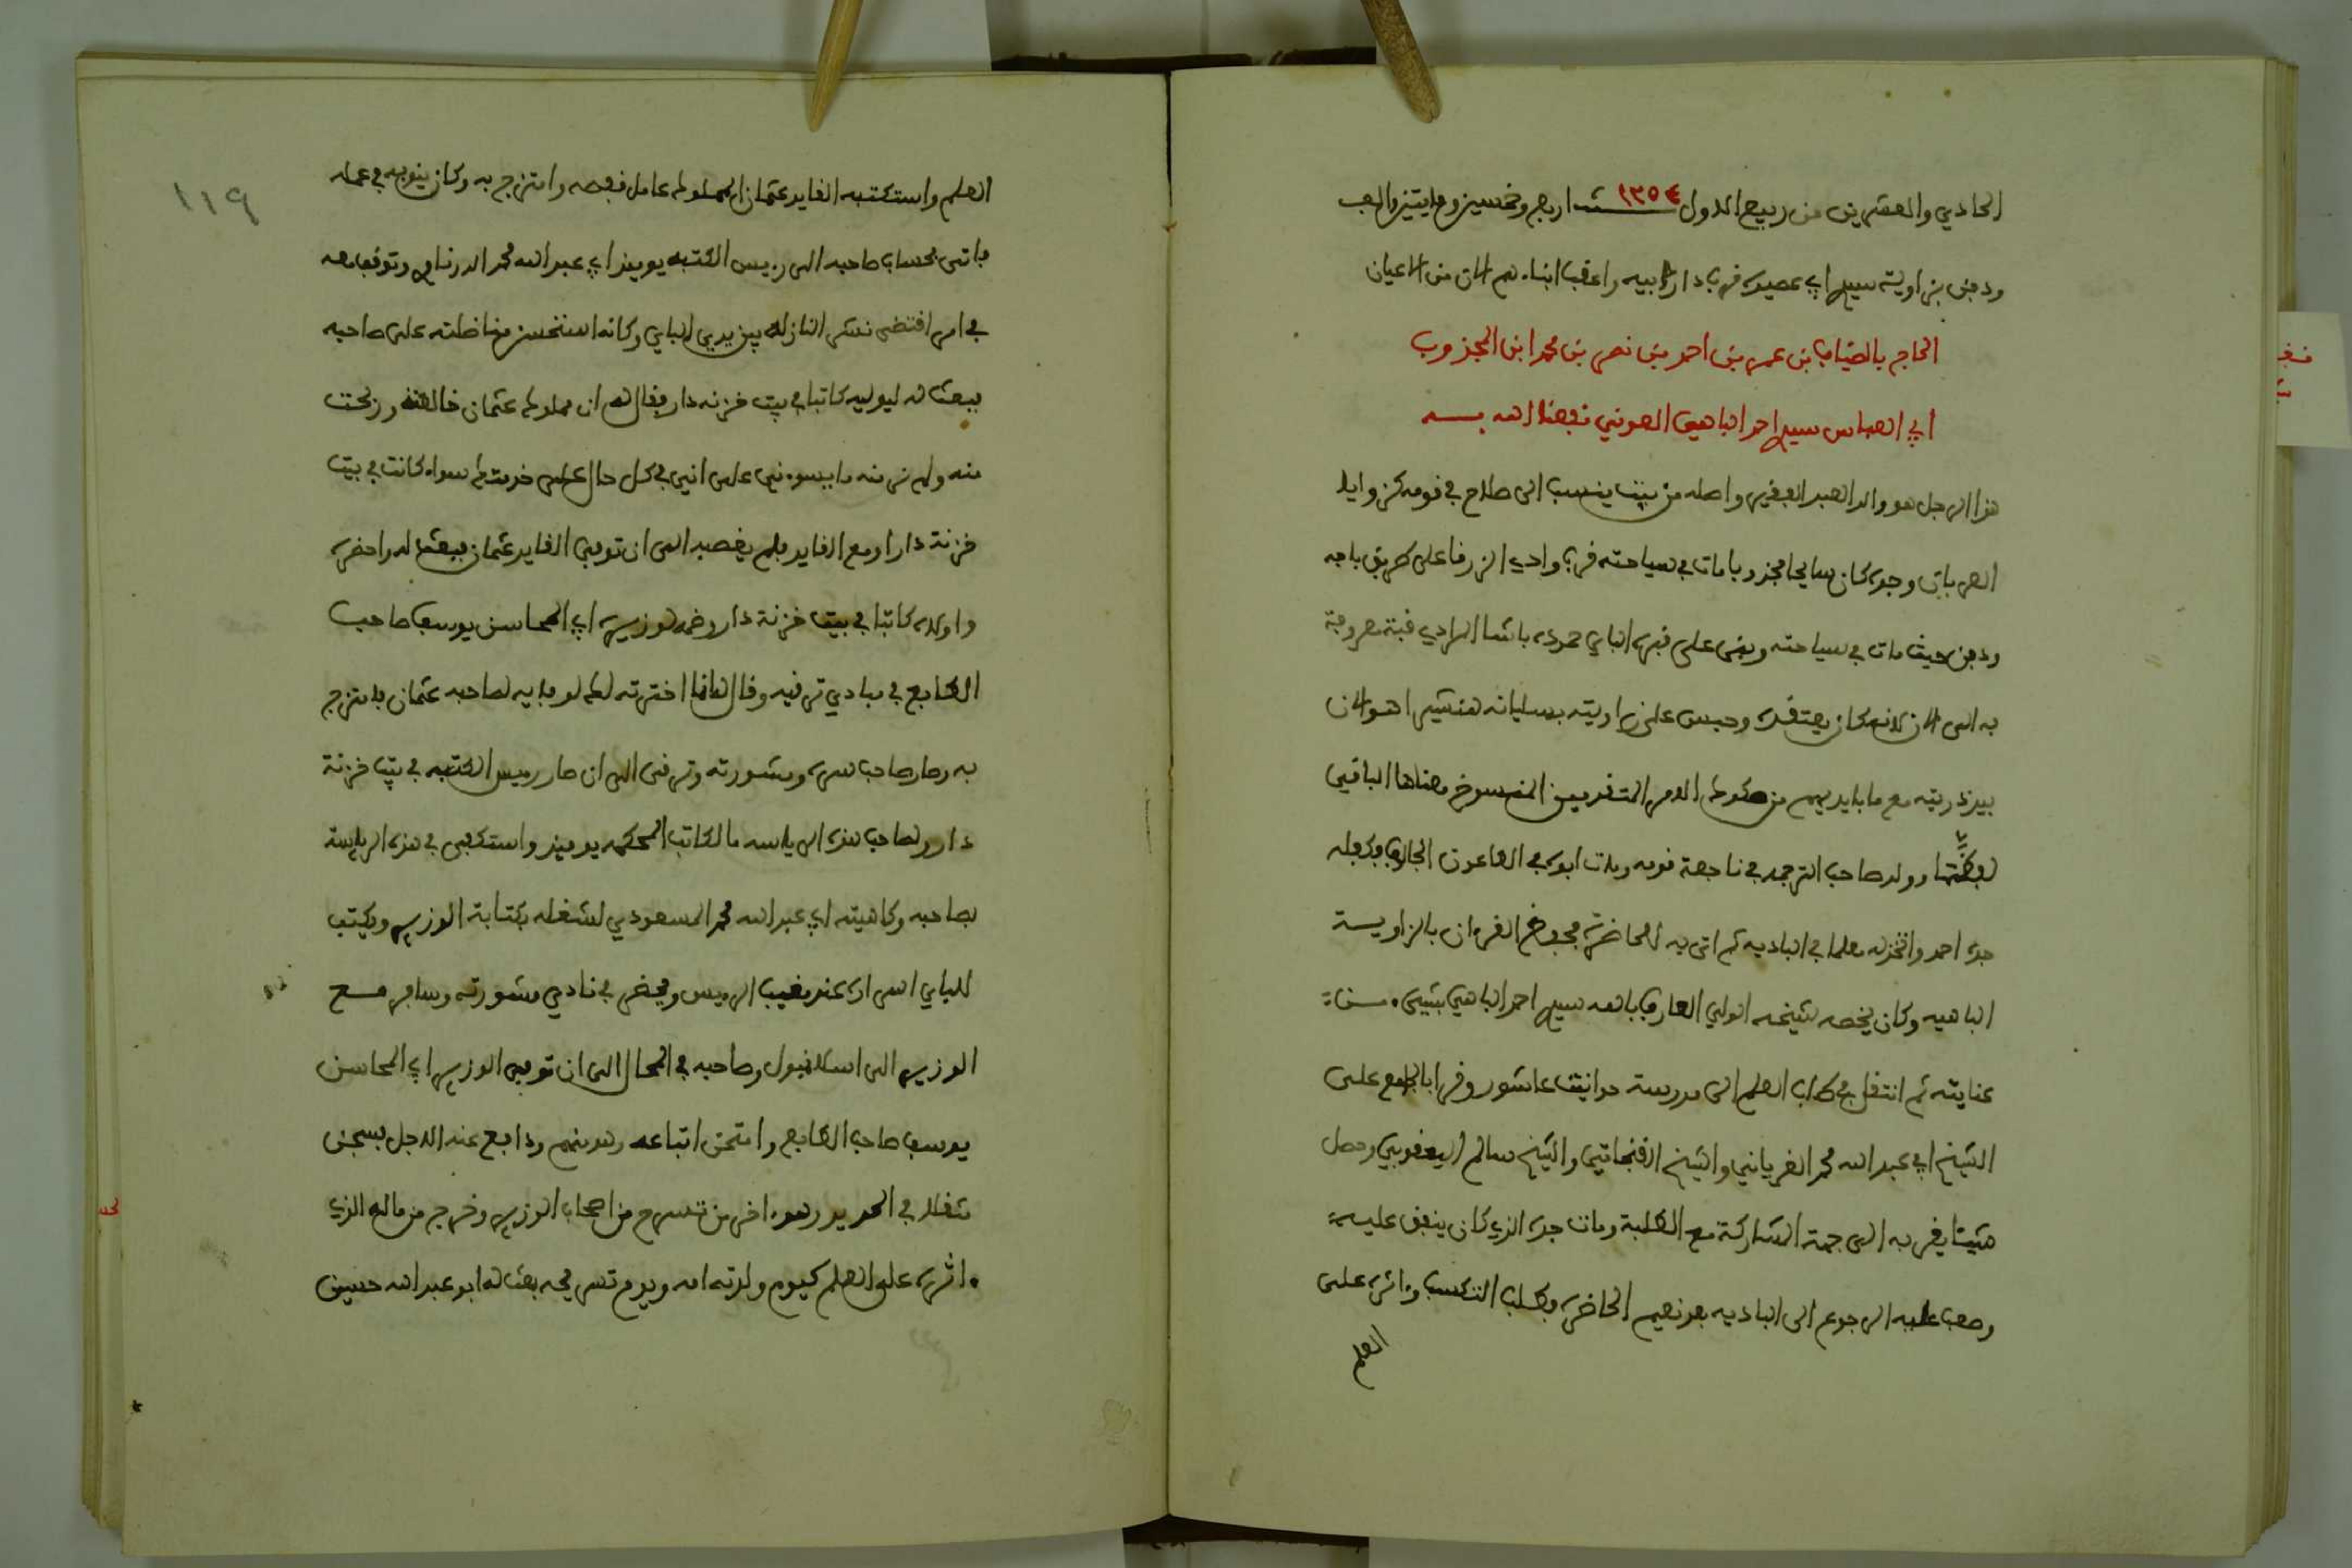 الحادي والعشرين من ربيع الاول سنة ١٢٥٤ اربع وخمسين ومايتين والف
ودفن بزاوية سيدي ابي عصيده قرب دار ابيه واعقب ابناء هم الان من الاعيان
الحاج بالضياف بن عمر بن احمد بن نصر بن محمد ابن المجذوب
ابي العباس سيدي احمد الباهي العوني نفعنا الله به
هذا الرجل هو والد العبد الفقير واصله من بيت ينسب الى صلاح في قومه كنز وايلا
العرباق وجده كان سايحا مجذوبا مات في سياحته قرب وادي الزرقا على طريق باجه
ودفن حيث مات في سياحته وبنى على قبره الباي حموده باشا المرادي قبة معروفة
به الى الان لانه كان يعتقده وحبس على زاويته بسليانه هنشير اهو الان
بيد ذريته مع ما بايديهم من صكوك الامر المتقدمين المنسوخ معناها الباقي
لفظها وولد صاحب الترجمه في ناجعة قومه ومات ابوه في الطاعون الجارف وكفله
جده احمد واتخذ له معلما في الباديه ثم اتى به للحاضرة فحفظ القران بالزاوية
الباهيه وكان يخصه شيخه الولي العارف بالله سيدي احمد الباهي بشيء من
عنايته ثم انتقل في طلب العلم الى مدرسة حوانيت عاشور وقرا بالجامع على
الشيخ ابي عبد الله محمد الفرياني والشيخ القفجاقي والشيخ سالم اليعقوبي وحصل
شيئا يقربه الى جهة المشاركة مع الطلبة ومات جده الذي كان ينفق عليه
وصعب عليه الرجوع الى الباديه بعد نعيم الحاضرة وطلب التكسب واثره على
العلم
١١٩
العلم واستكتبه القايد عثمان المملوك عامل قفصه وامتزج به وكان ينوبه في عمله
فاتى بحساب صاحبه الى رييس الكتبه يوميذ ابي عبد الله محمد الدرناوي وتوقف معه
في امر اقتضى نشر النازله بين يدي الباي وكانه استحسن مناضلته على صاحبه
فبعث له ليوليه كاتبا في بيت خزنه دار فقال له ان مملوكك عثمان خالطته وربحت
منه ولم نر منه ما يسوءني على اني في كل حال على خدمتك سواء كانت في بيت
خزنة دار او مع القايد فلم يغصبه الى ان توفي القايد عثمان فبعث له واحضره
واولاه كاتبا في بيت خزنة دار وضمه لوزيره ابي المحاسن يوسف صاحب
الطابع في مبادي ترقيه وقال له انا اخترته لك لوفايه لصاحبه عثمان فامتزج
به وصار صاحب سره ومشورته وترقى الى ان صار رييس الكتبه في بيت خزنة
دار ولصاحب هذه الرياسه ما لكاتب المحكمه يوميذ واستكفى في هذه الرياسة
بصاحبه وكاهيته ابي عبد الله محمد المسعودي لشغله بكتابة الوزير ويكتب
للباي اسراره عند مغيب الرييس ويحضر في نادي مشورته وسافر مع
الوزير الى اسلانبول وصاحبه في المحال الى ان توفي الوزير ابي المحاسن
يوسف صاحب الطابع وامتحن اتباعه وهو منهم ودافع عنه الاجل بسجن
مثقلا في الحديد وهو اخر من تسرح من اصحاب الوزير وخرج من ماله الذي
اثره على العلم كيوم ولدته امه ويوم تسريحه بعث له ابو عبد الله حسين